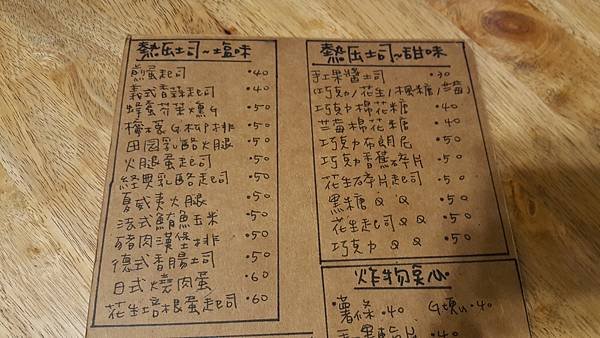 熱压土司~塩味
煎蛋起司 •40
義式香辣起司 •40
蜂蜜芥茉燻G •50
檸檬G柳排 •50
田园乳酪火腿 •50
火腿蛋起司 •50
經典乳酪起司 •50
夏威夷火腿 •50
法式鮪魚玉米 •50
豬肉漢堡排 •50
德式香腸土司 •50
日式燒肉蛋 •60
花生培根蛋起司 •60
熱压土司~甜味
手工果醬土司 •30
(巧克力/花生/楓糖/草莓)
巧克力棉花糖 •40
草莓棉花糖 •40
巧克力布朗尼 •50
巧克力香蕉碎片 •50
花生碎片起司 •50
黑糖QQ •50
花生起司QQ •50
巧克力QQ •50
炸物点心
薯條 •40 G塊 •40